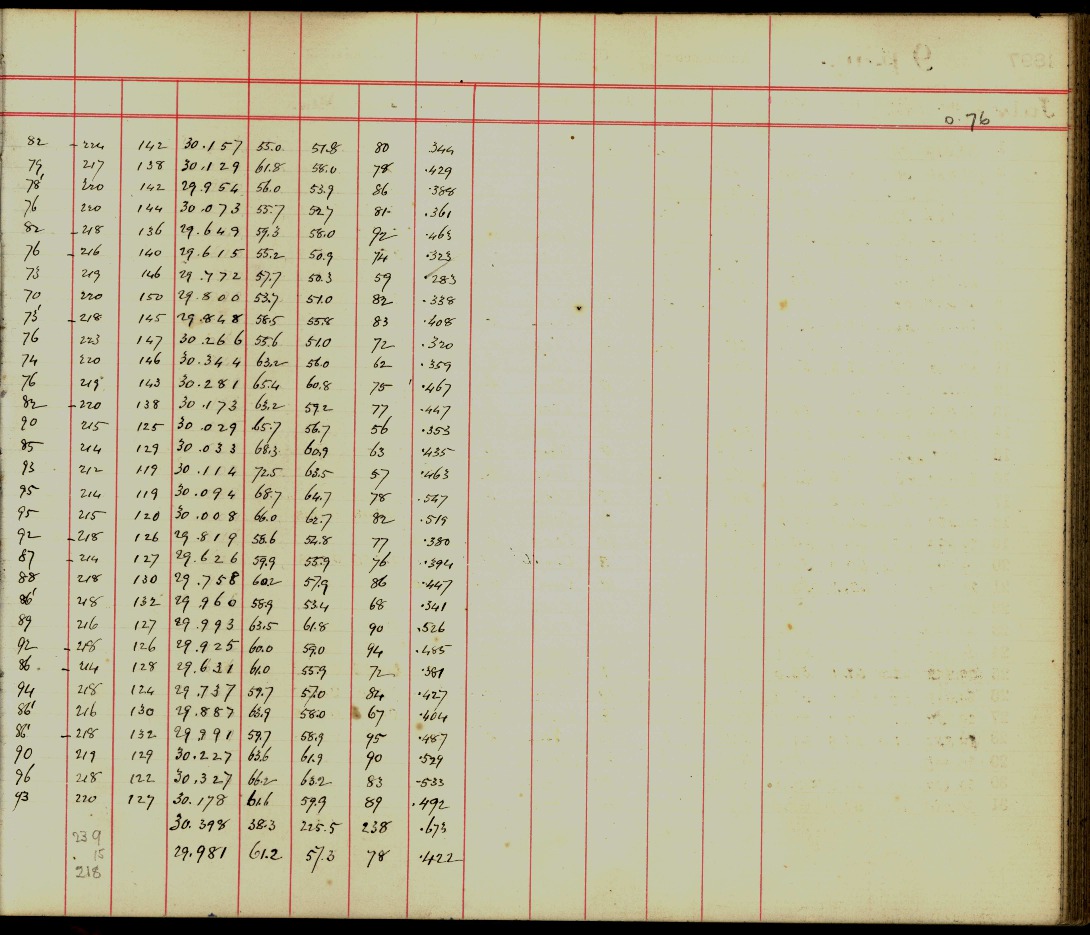 0.76
82 -224 142 30.157 55.0 51.8 80 .344
79 217 138 30.129 61.8 58.0 78 .429
78' 220 142 29.954 56.0 53.9 86 .388
76 220 144 30.073 55.7 52.7 81 .361
82 -218 136 29.649 59.3 58.0 92 .463
76 -216 140 29.615 55.2 50.9 74 .323
73 219 146 29.772 57.7 50.3 59 .283
70 220 150 29.800 53.7 51.0 82 .338
73' -218 145 29.848 58.5 55.8 83 .408
76 223 147 30.266 55.6 51.0 72 .320
74 220 146 30.344 63.2 56.0 62 .359
76 219 143 30.281 65.4 60.8 75 .467
82 -220 138 30.173 63.2 59.2 77 .447
90 215 125 30.029 65.7 56.7 56 .353
85 214 129 30.033 68.3 60.9 63 .435
93 212 119 30.114 72.5 63.5 57 .463
95 214 119 30.094 68.7 64.7 78 .547
95 215 120 30.008 66.0 62.7 82 .519
92 -218 126 29.819 58.6 54.8 77 .380
87 -214 127 29.626 59.9 55.9 76 .394
88 218 130 29.758 60.2 57.9 86 .447
86' 218 132 29.960 58.9 53.4 68 .341
89 216 127 29.993 63.5 61.8 90 .526
92 -218 126 29.925 60.0 59.0 94 .485
86 -214 128 29.631 61.0 55.9 72 .381
94 218 124 29.737 59.7 57.0 84 .427
86' 216 130 29.887 63.9 58.0 67 .404
86' -218 132 29.991 59.7 58.9 95 .487
90 219 129 30.227 63.6 61.9 90 .529
96 218 122 30.327 66.2 63.2 83 .533
93 220 127 30.178 61.6 59.9 89 .492
30.398 38.3 225.5 238 .673
239
15
218
29.981 61.2 57.3 78 .422